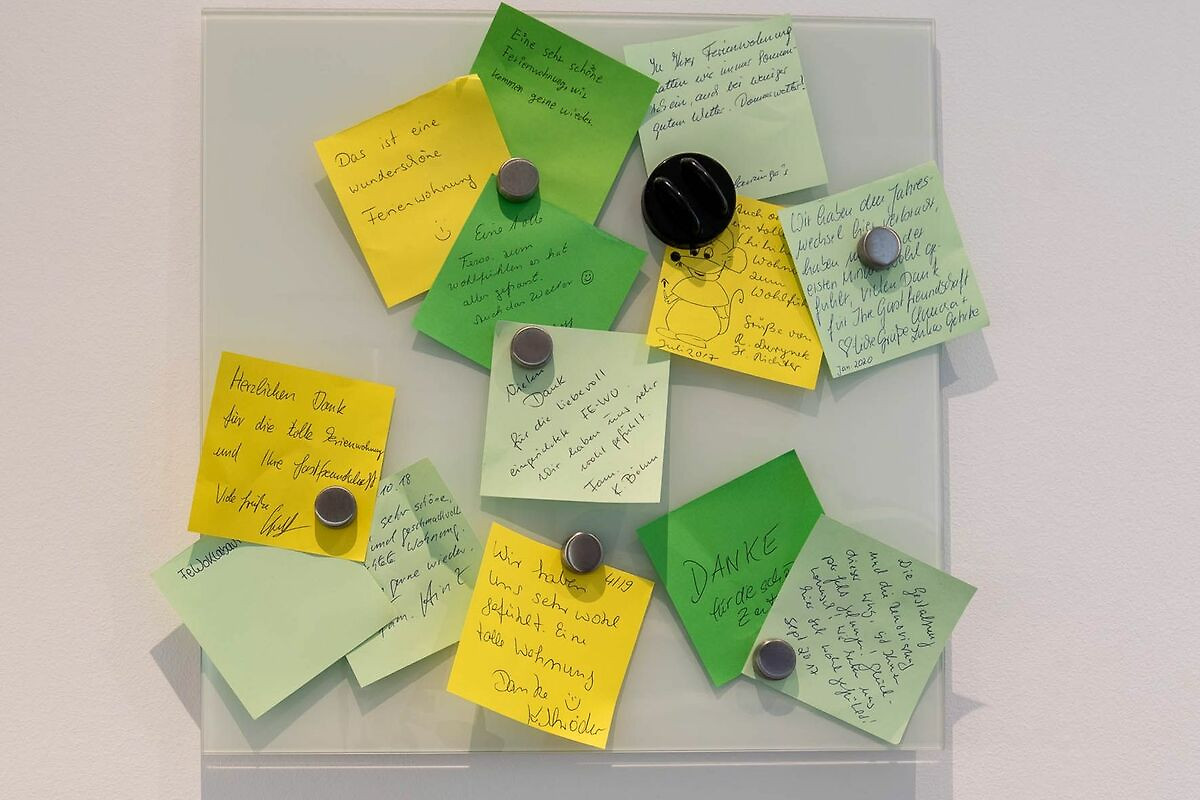 Eine sehr schöne
Ferienwohnung, wir
kommen gerne wieder.
In Ihrer Ferienwohnung
hatten wir immer Sonnen-
schein, auch bei weniger
gutem Wetter. Donnerwetter!
Das ist eine
wunderschöne
Ferienwohnung
Eine tolle
Fewo. zum
wohlfühlen es hat
alles gepasst.
Auch das Wetter
Auch
tolle
Wohn
zum
Wohlfüh
Grüße von
H. Richter
Juli 2017
Wir haben den Jahres-
wechsel hier verbracht,
haben der
ersten Minute wohl ge-
fühlt. Vielen Dank
für Ihre Gastfreundschaft
Liebe Grüße
Jan. 2020
Vielen
Dank
für die liebevoll
eingerichtete FE-WO
Wir haben uns sehr
wohl gefühlt.
Fam.
K. Böhm
Herzlichen Dank
für die tolle Ferienwohnung
und Ihre Gastfreundschaft
Viele Grüße
10.18
sehr schöne,
und geschmackvoll
Wohnung.
gerne wieder.
Fam. Hinz
Wir haben 4/19
uns sehr wohl
gefühlt. Eine
tolle Wohnung
Danke
K. Schröder
DANKE
für die schö
Zeit
Die Gestaltung
und die Renovierung
dieser Whg. ist Ihnen
perfekt gelungen. Glück-
wunsch! Wir haben uns
hier sehr wohl gefühlt!
Sept 2017